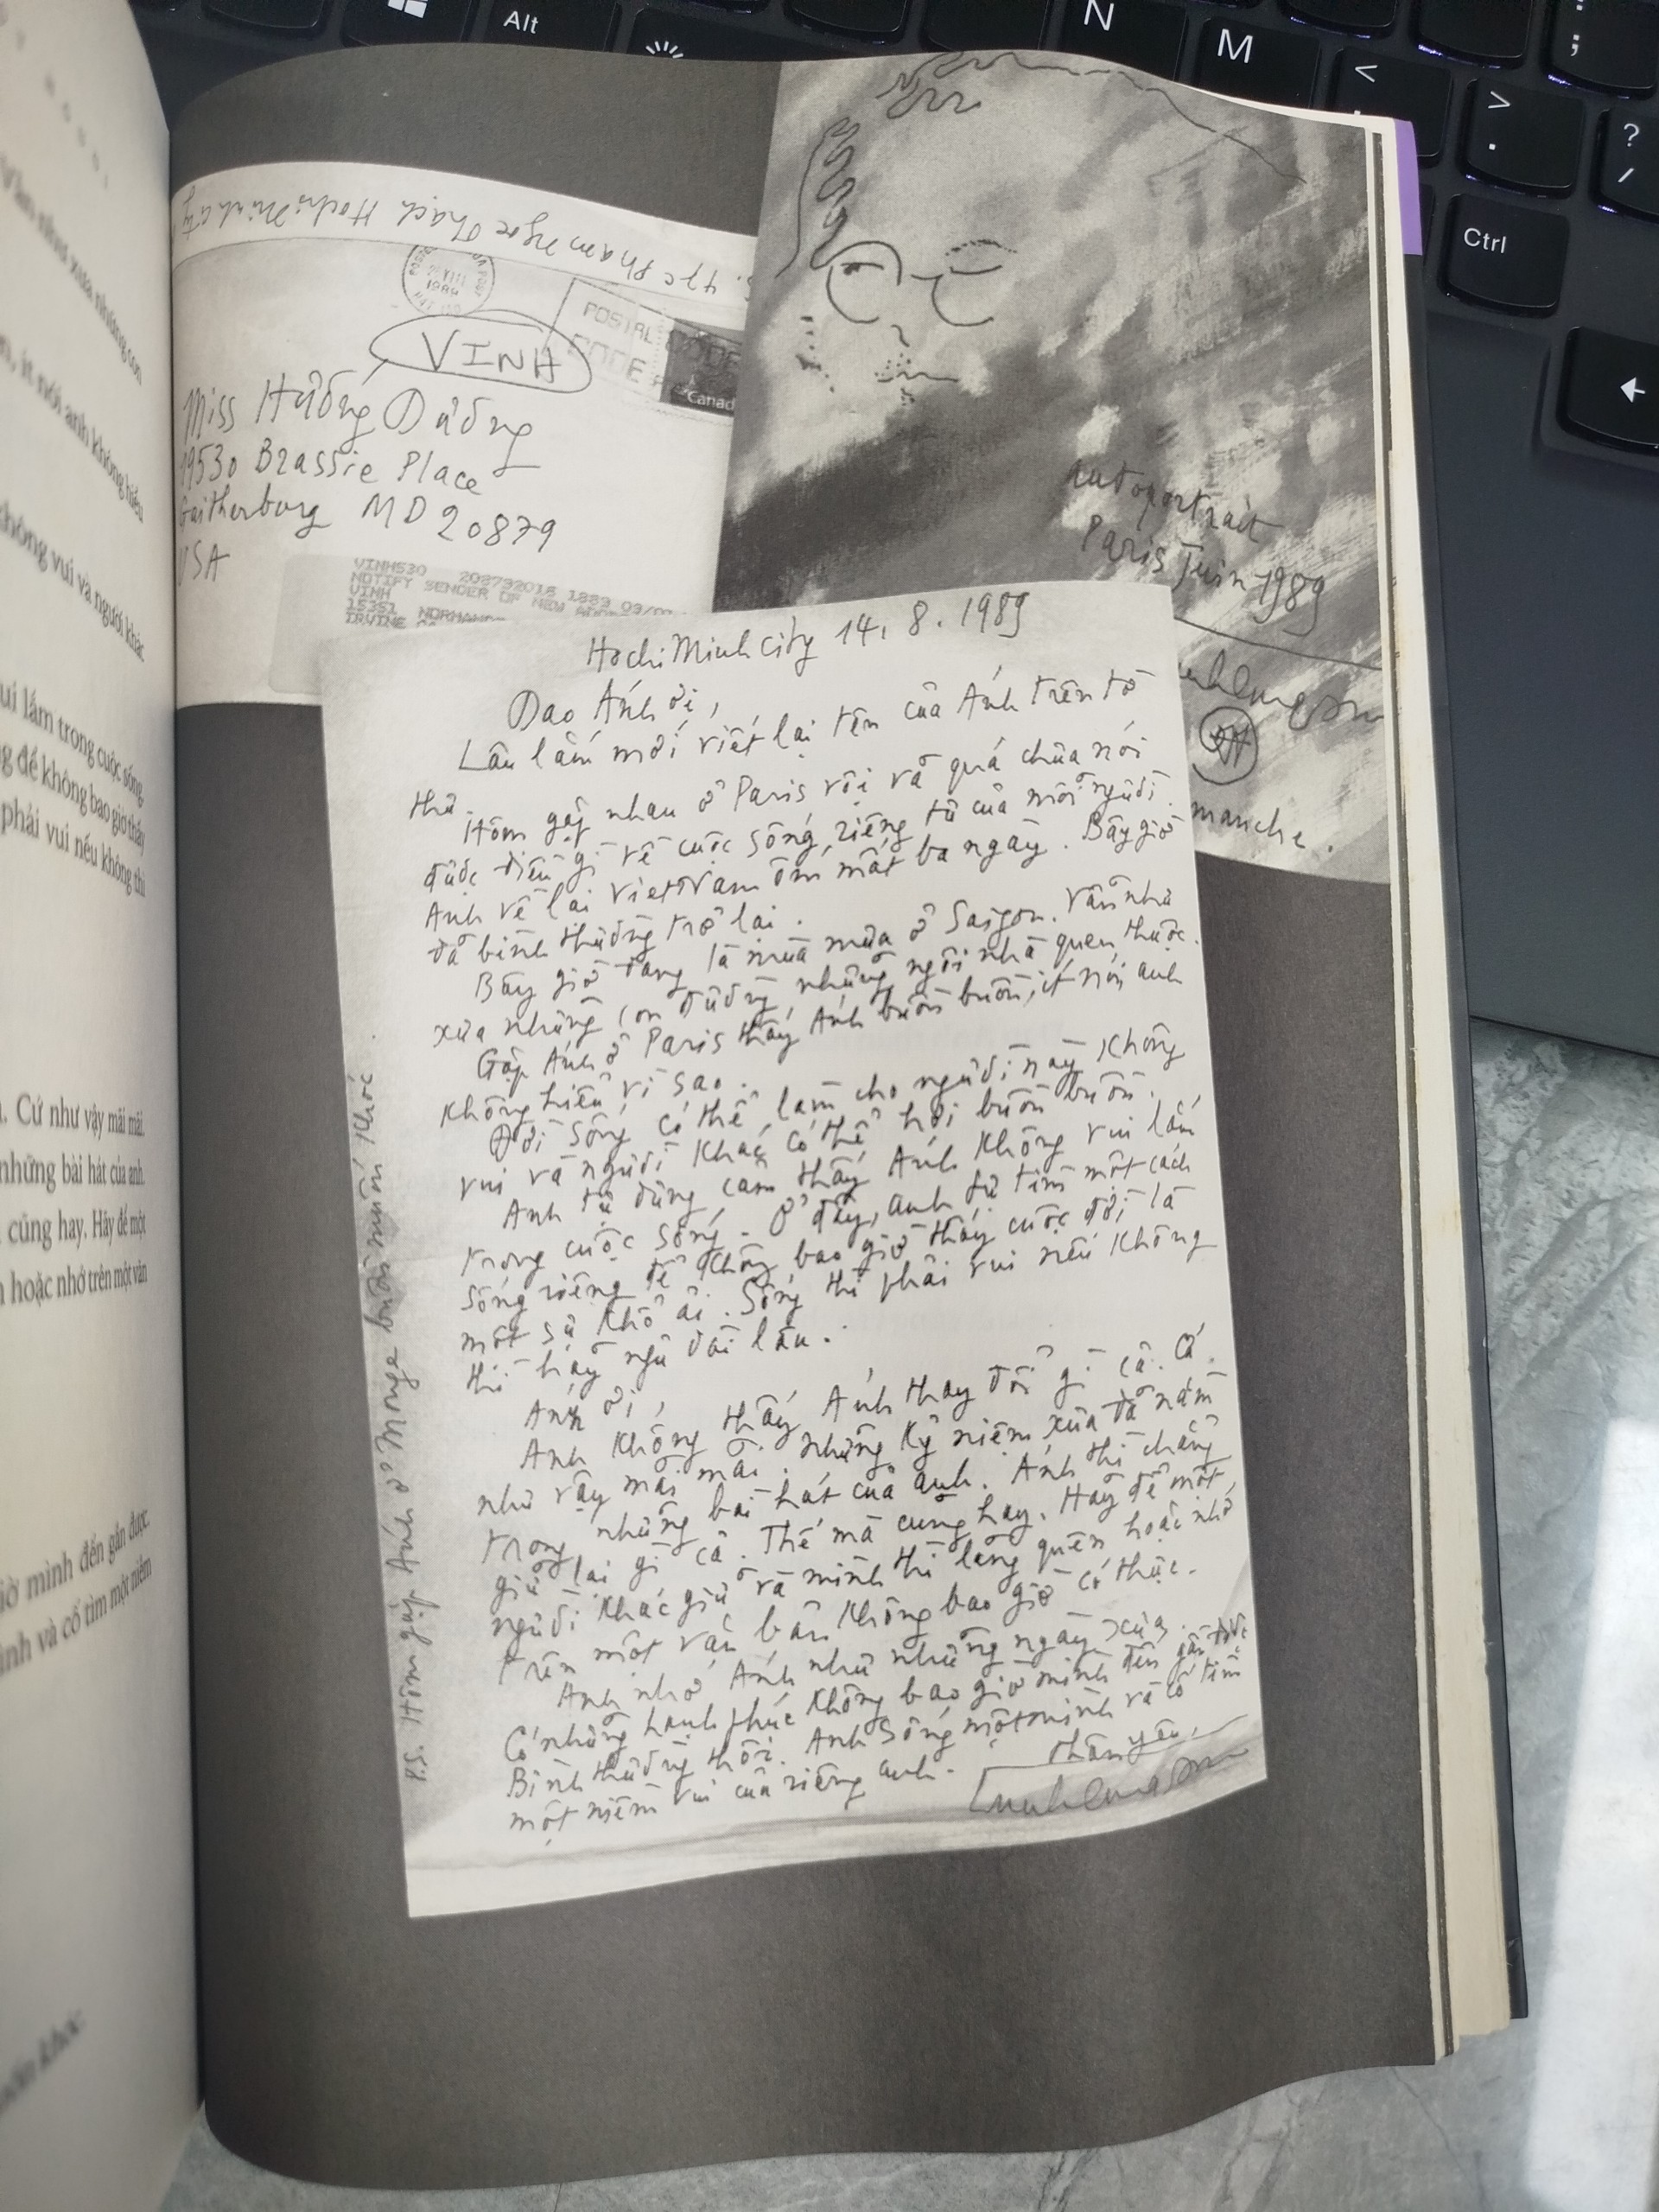 Alt
N
M
<
>
.
?
/
;
Ctrl
Văn như xưa những con
, ít nói anh không hiểu
không vui và người khác
ui lắm trong cuộc sống.
g để không bao giờ thấy
phải vui nếu không thì
. Cứ như vậy mãi mãi.
những bài hát của anh.
cũng hay. Hãy để một
hoặc nhớ trên một văn
giờ mình đến gần được.
mình và cố tìm một niềm
47c Phạm Ngọc Thạch HochiMinh city
1989
POSTAL CODE
CODE
Canada
VINH
Miss Hướng Dương
19530 Brassie Place
Gaitherburg MD 20879
USA
VINH530 208792016 1889 09/0
NOTIFY SENDER OF NEW ADDRE
VINH
15351 NORMAND
IRVINE CA
autoportrait
Paris Juin 1989
manche.
HochiMinh city 14.8.1989
Dao Ánh ơi,
Lâu lắm mới viết lại tên của Ánh trên tờ
thư.
Hôm gặp nhau ở Paris vội vã quá chưa nói
được điều gì về cuộc sống riêng tư của mỗi người.
Anh về lại Việt Nam ốm mất ba ngày. Bây giờ
đã bình thường trở lại.
Bây giờ đang là mùa mưa ở Saigon. Vẫn như
xưa những con đường, những ngôi nhà quen thuộc.
Gặp Ánh ở Paris thấy Ánh buồn buồn, ít nói anh
không hiểu vì sao.
Đời sống có thể làm cho người này không
vui và người khác có thể hơi buồn buồn.
Anh tự dưng cảm thấy Ánh không vui lắm
trong cuộc sống. Ở đây, anh tự tìm một cách
sống riêng để không bao giờ thấy cuộc đời là
một sự khổ ải. Sống thì phải vui nếu không
thì hãy ngủ dài lâu.
Ánh ơi,
Anh không thấy Ánh thay đổi gì cả. Cứ
như vậy mãi mãi. Những kỷ niệm xưa đã nằm
trong những bài hát của anh. Ánh thì chẳng
giữ lại gì cả. Thế mà cũng hay. Hãy để một
người khác giữ và mình thì lãng quên hoặc nhớ
trên một văn bản không bao giờ có thực.
Anh nhớ Ánh như những ngày xưa.
Có những hạnh phúc không bao giờ mình đến gần được.
Bình thường thôi. Anh sống một mình và cố tìm
một niềm vui của riêng anh.
Thân yêu,
P.S. Hôm gặp Ánh ở Monge buồn muốn khóc.